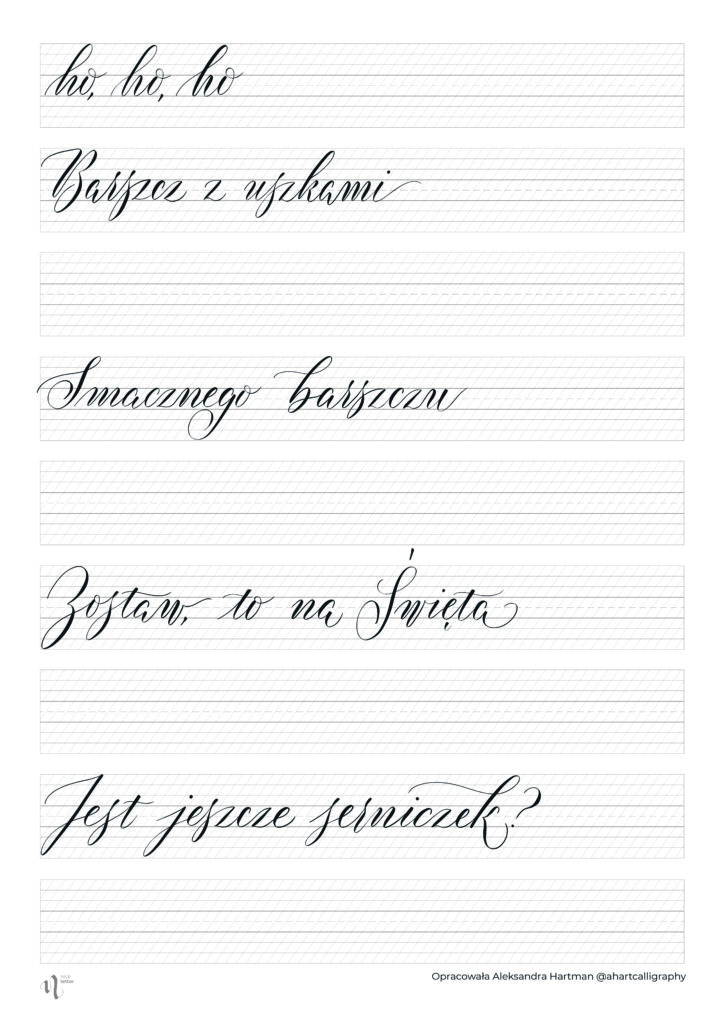 ho, ho, ho
Barszcz z uszkami
Smacznego barszczu
Zostaw, to na Święta
Jest jeszcze serniczek?
letter
Opracowała Aleksandra Hartman @ahartcalligraphy